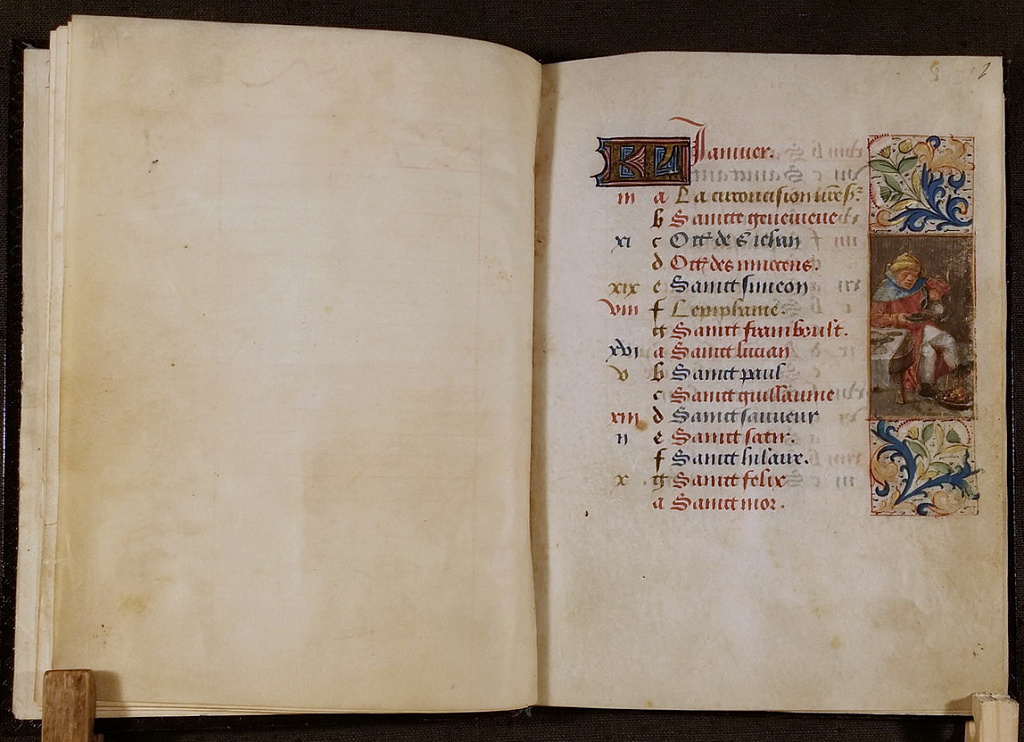 KL Januier.
iii a La circoncision nre sr.
b Saincte geneuieue
xi c Oct. de s. iehan
d Oct. des innocens.
xix e Sainct simeon
viii f L epiphanie.
g Sainct frambourlt.
xvi a Sainct lucian
v b Sainct paul
c Sainct guillaume
xiii d Sainct sauueur
ii e Sainct satir.
f Sainct hilaire.
x g Sainct felix
a Sainct mor.